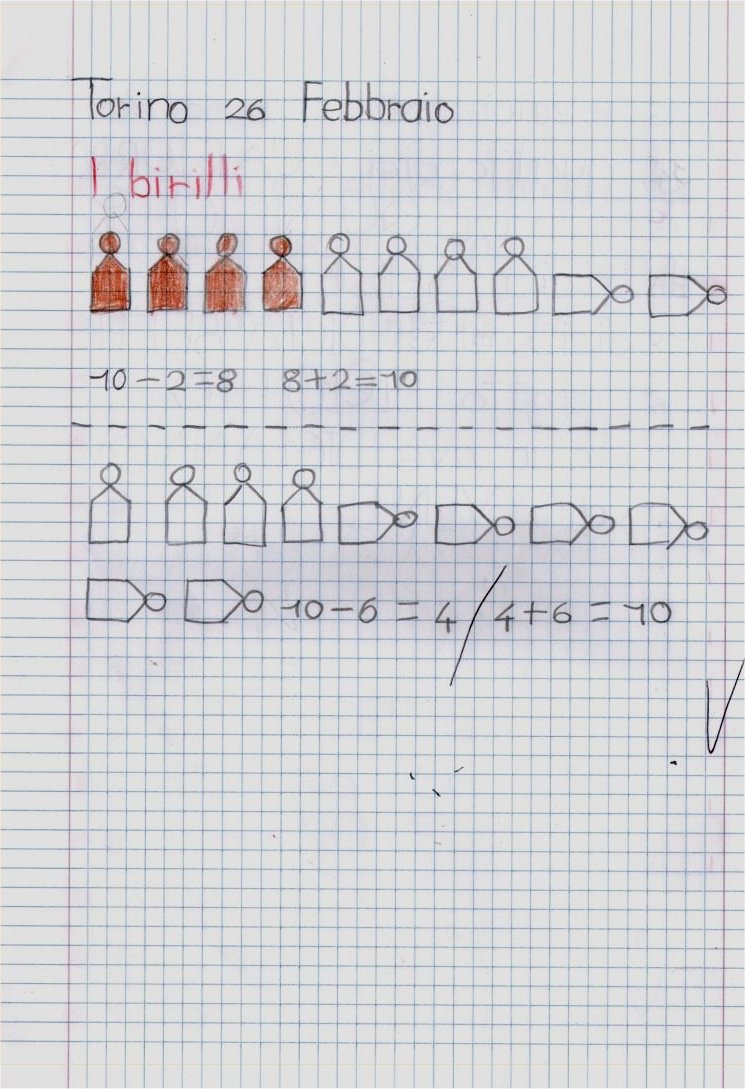 Torino 26 Febbraio
I birilli
10-2=8 8+2=10
10-6=4/4+6=10